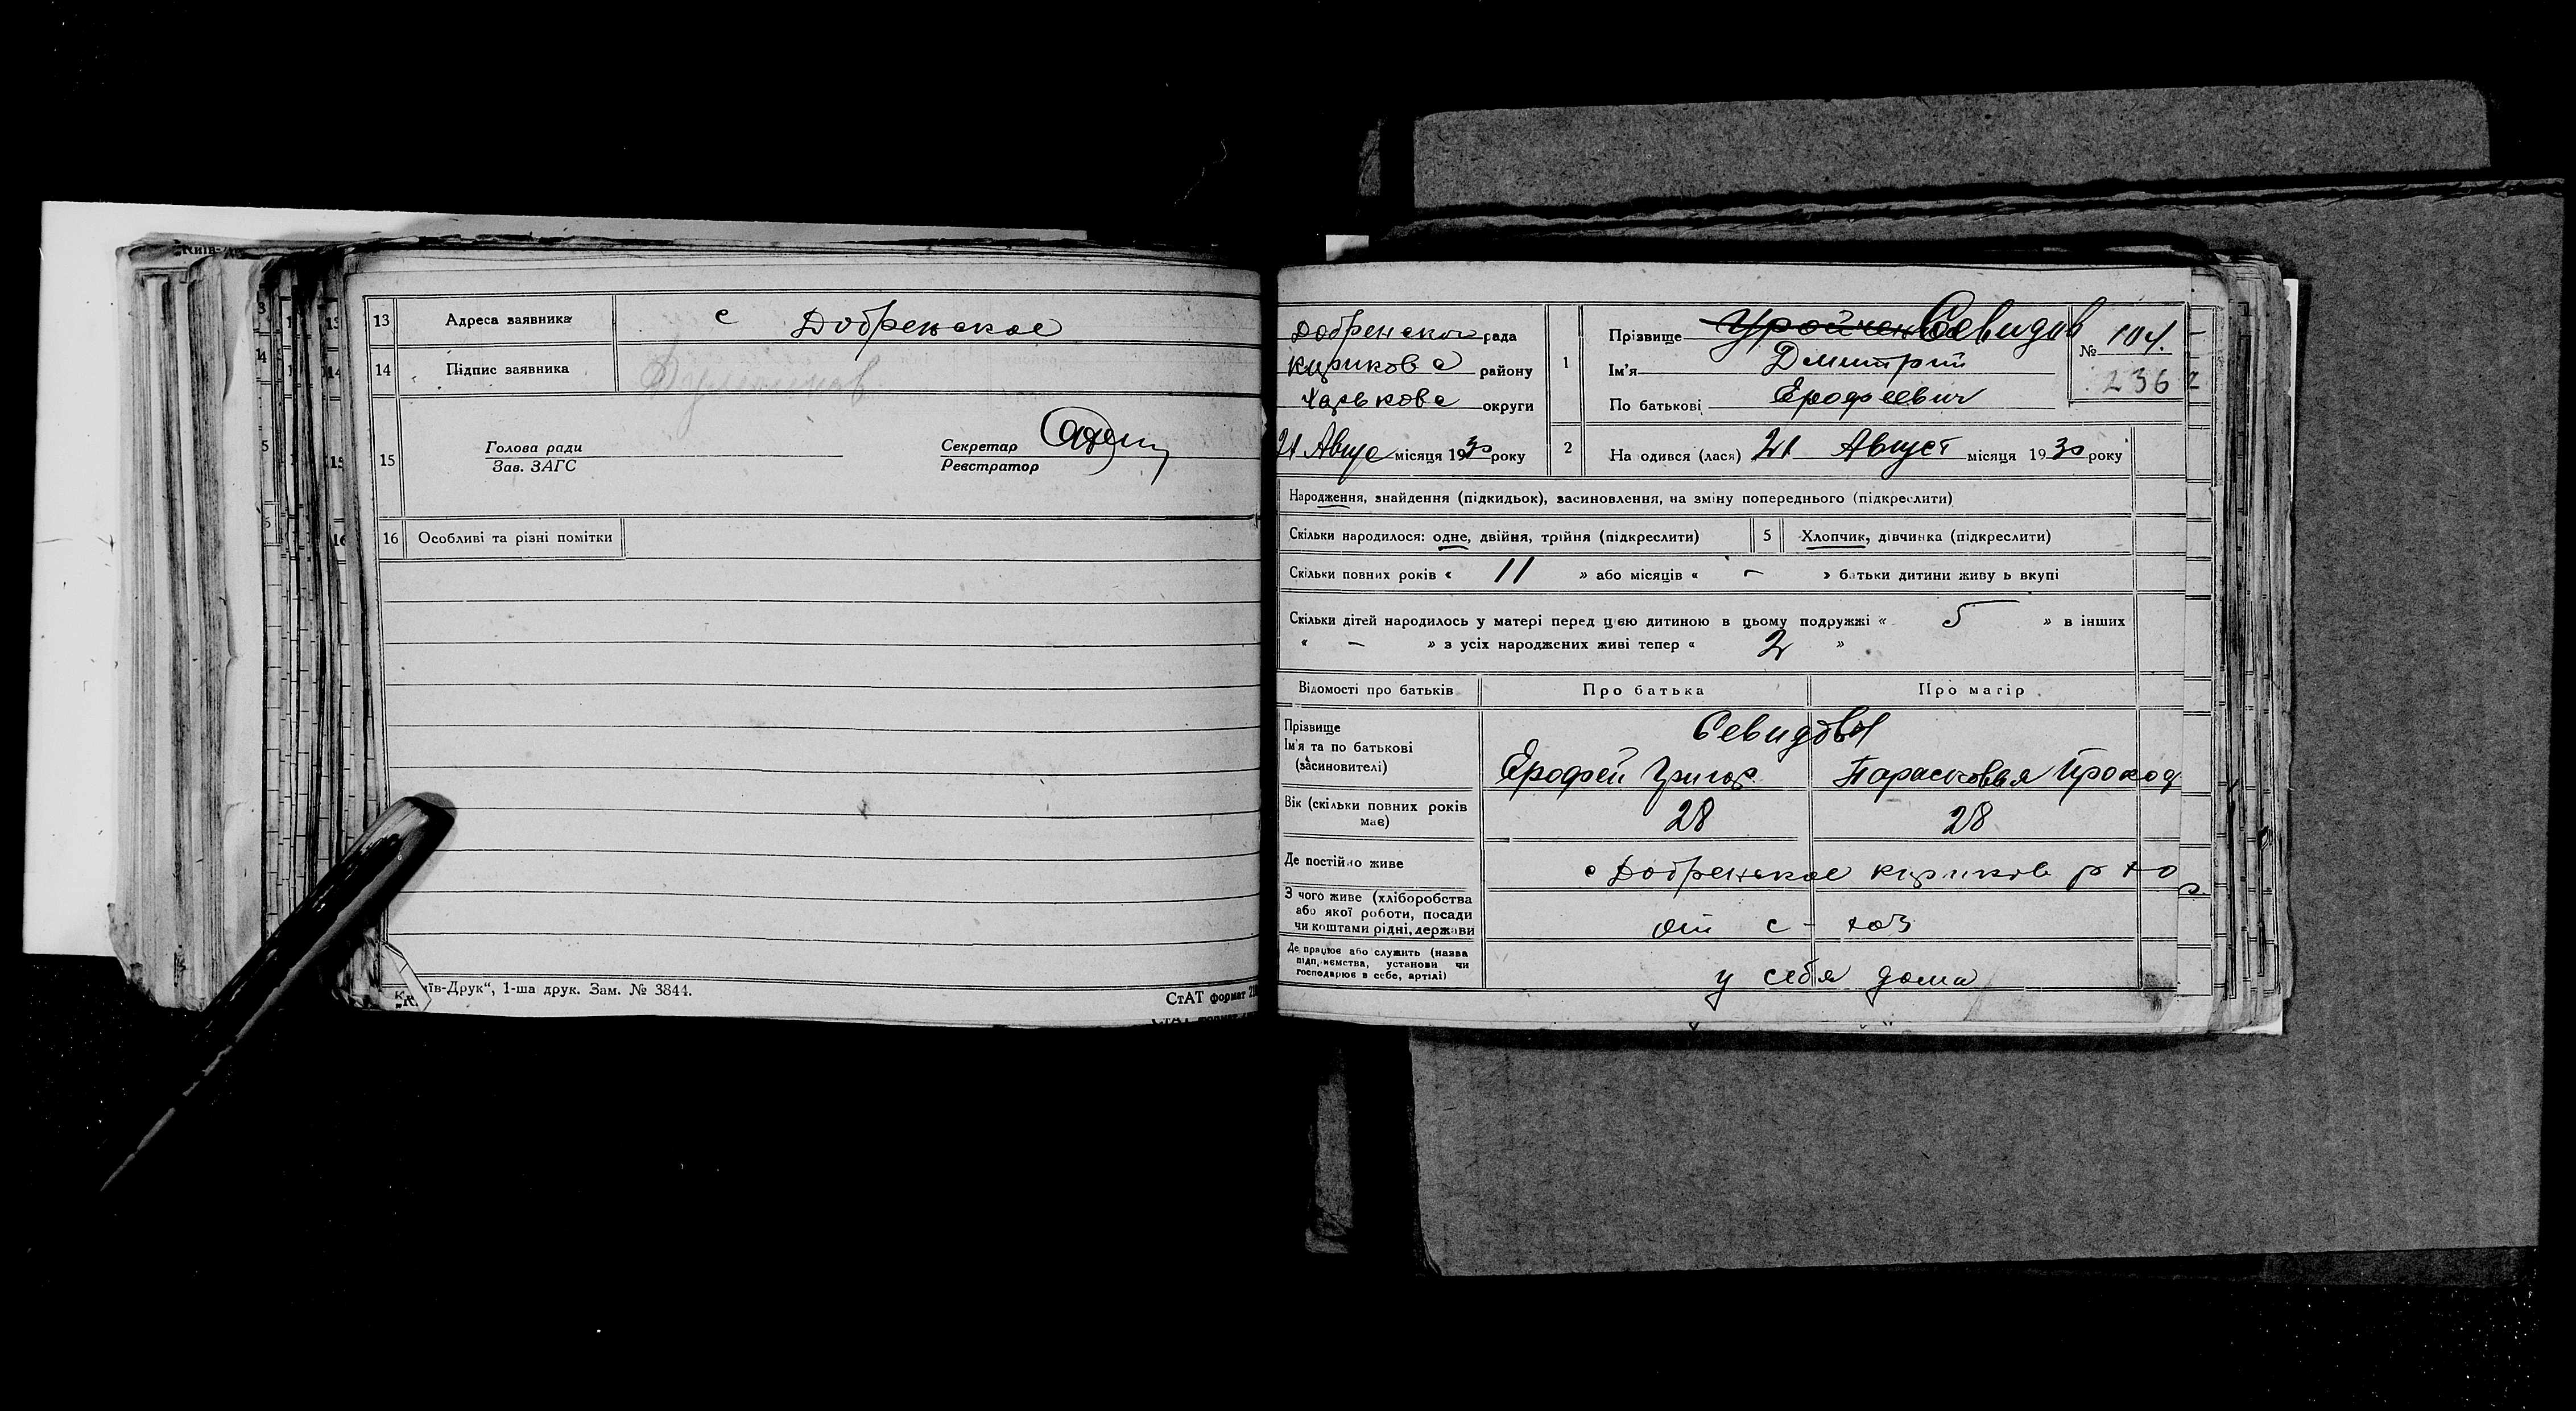 13 Адреса заявника с Добренское
14 Підпис заявника
15 Голова ради
Зав. ЗАГС
Секретар
Реєстратор
16 Особливі та різні помітки
Київ-Друк“, 1-ша друк. Зам. № 3844.
СтАТ формат
Добренской рада
Кириково району
Харькова округи
21 Авгус місяця 1930 року
1 Прізвище Севидов
Ім'я Дмитрий
По батькові Ерофеевич
№ 104.
236
2 На одився (лася) 21 Август місяця 1930 року
Народження, знайдення (підкидьок), засиновлення, на зміну попереднього (підкреслити)
Скільки народилося: одне, двійня, трійня (підкреслити) 5 Хлопчик, дівчинка (підкреслити)
Скільки повних років « 11 » або місяців « – » батьки дитини живу ь вкупі
Скільки дітей народилось у матері перед цією дитиною в цьому подружжі « 5 » в інших
« – » з усіх народжених живі тепер « 2 »
Відомості про батьків Про батька Про матір
Прізвище
Ім'я та по батькові
(засиновителі)
Севидовы
Ерофей Григор. Парасковья Прокоф
Вік (скільки повних років має) 28 28
Де постійно живе с Добренское Кириков р х о
З чого живе (хліборобства
або якої роботи, посади
чи коштами рідні, держави
от с-хоз
Де працює або служить (назва
підприємства, установи чи
господарює в себе, артілі)
у себя дома